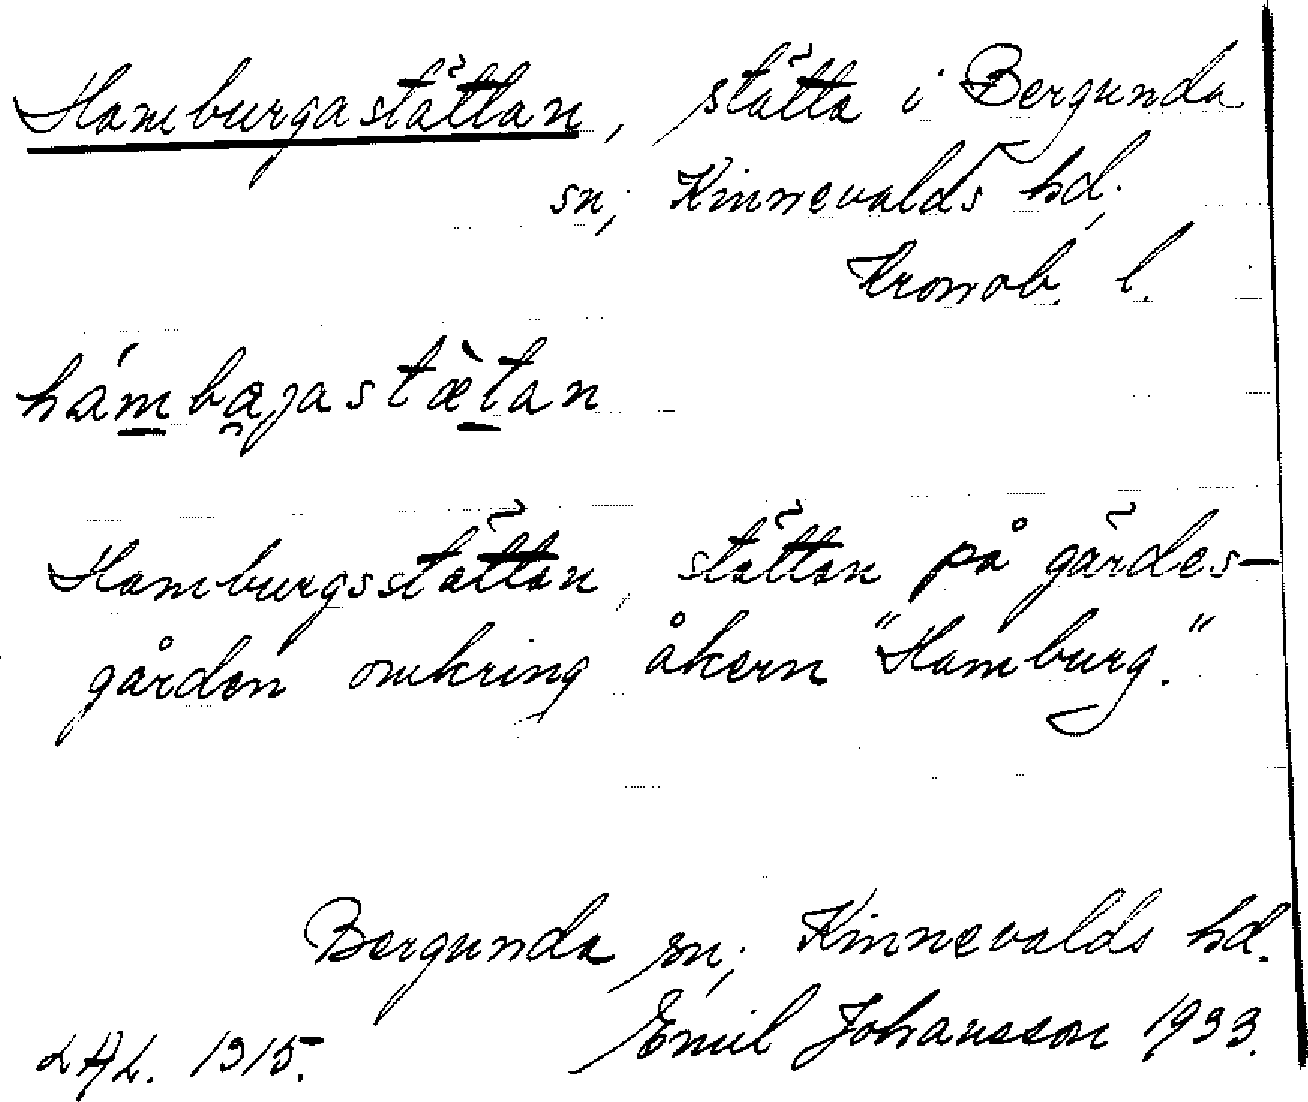 Hamburgastättan, stätta i Bergunda
sn; Kinnevalds hd;
Kronob. l.
hámbajastæ̀tan
Hamburgsstättan, stättan på gärdes-
gården omkring åkern "Hamburg."
Bergunda sn; Kinnevalds hd.
LAL. 1315. Emil Johansson 1933.